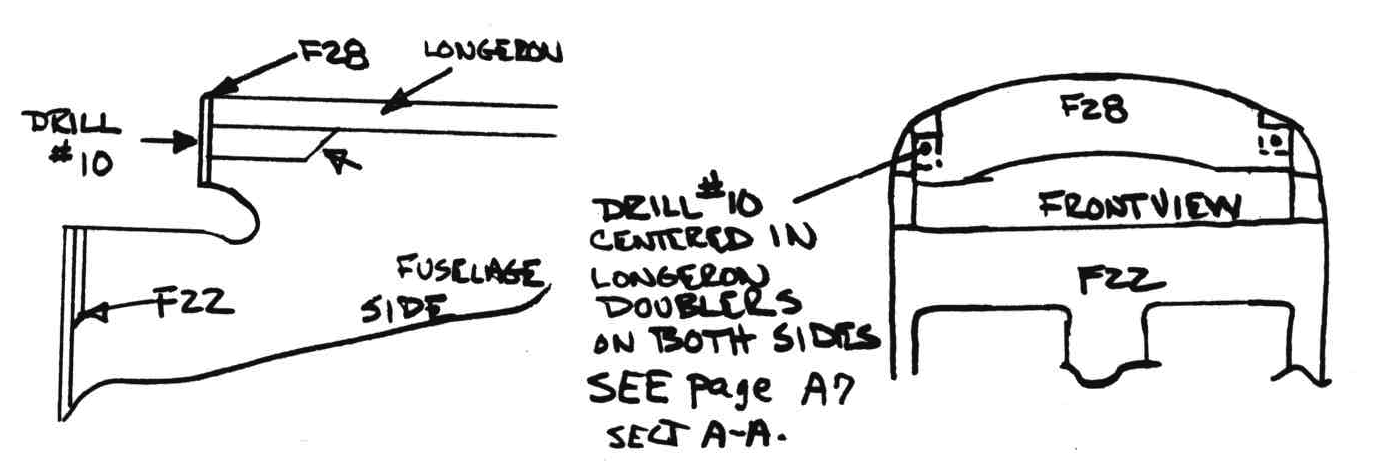 F28
LONGERON
DRILL
#10
FUSELAGE
SIDE
F22
DRILL #10
CENTERED IN
LONGERON
DOUBLERS
ON BOTH SIDES
SEE page A7
SECT A-A.
F28
FRONT VIEW
F22